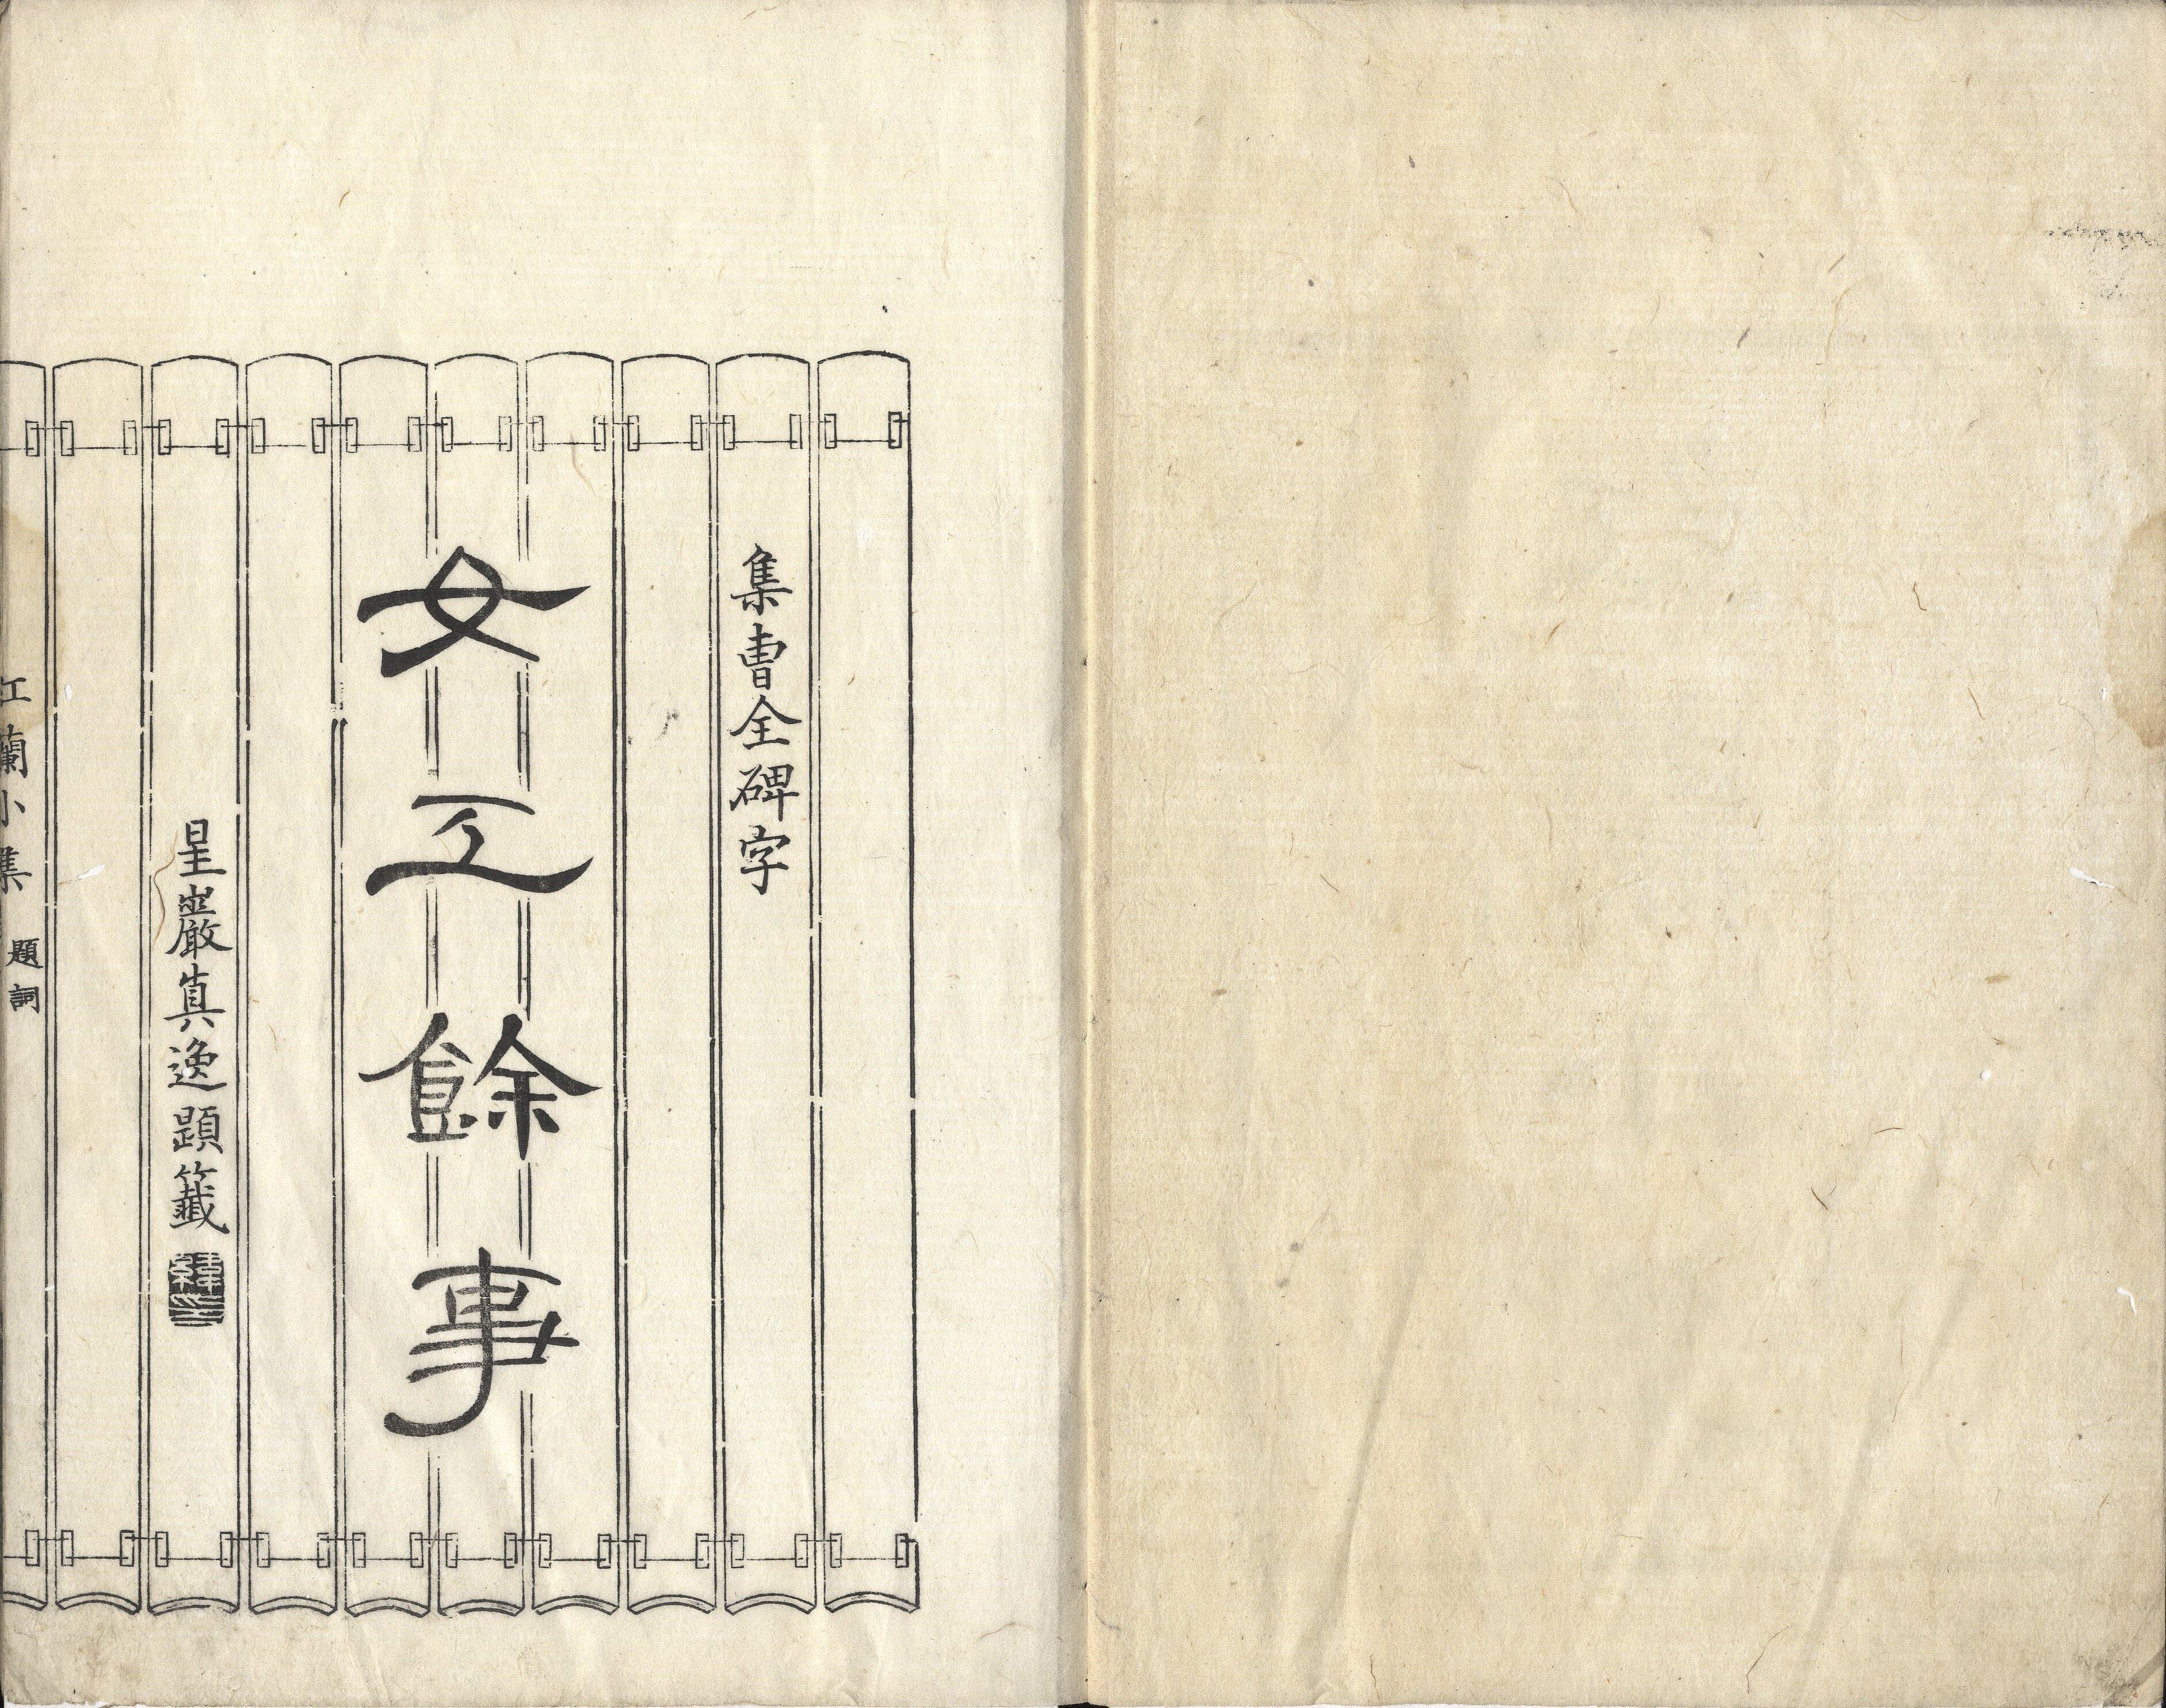 集曹全碑字
女工餘事
星巖真逸題籤
江蘭小集 題詞